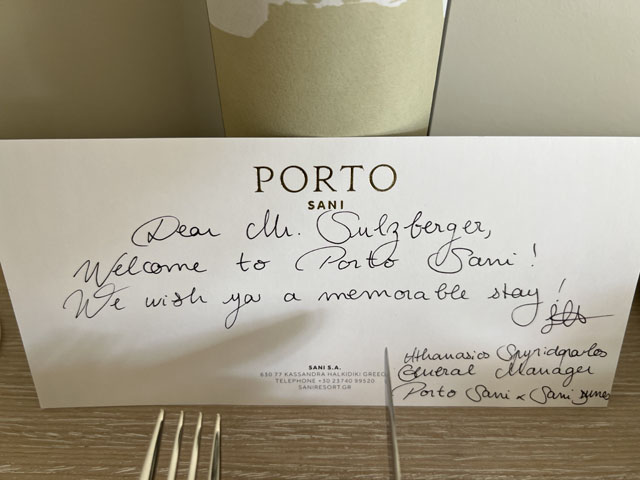 PORTO
SANI
Dear Mr. Sulzberger,
Welcome to Porto Sani!
We wish ya a memorable stay!
Athanasios
General Manager
Porto Sani & Sani Dunes
SANI S.A.
630 77 KASSANDRA HALKIDIKI GREECE
TELEPHONE +30 23740 99520
SANIRESORT.GR